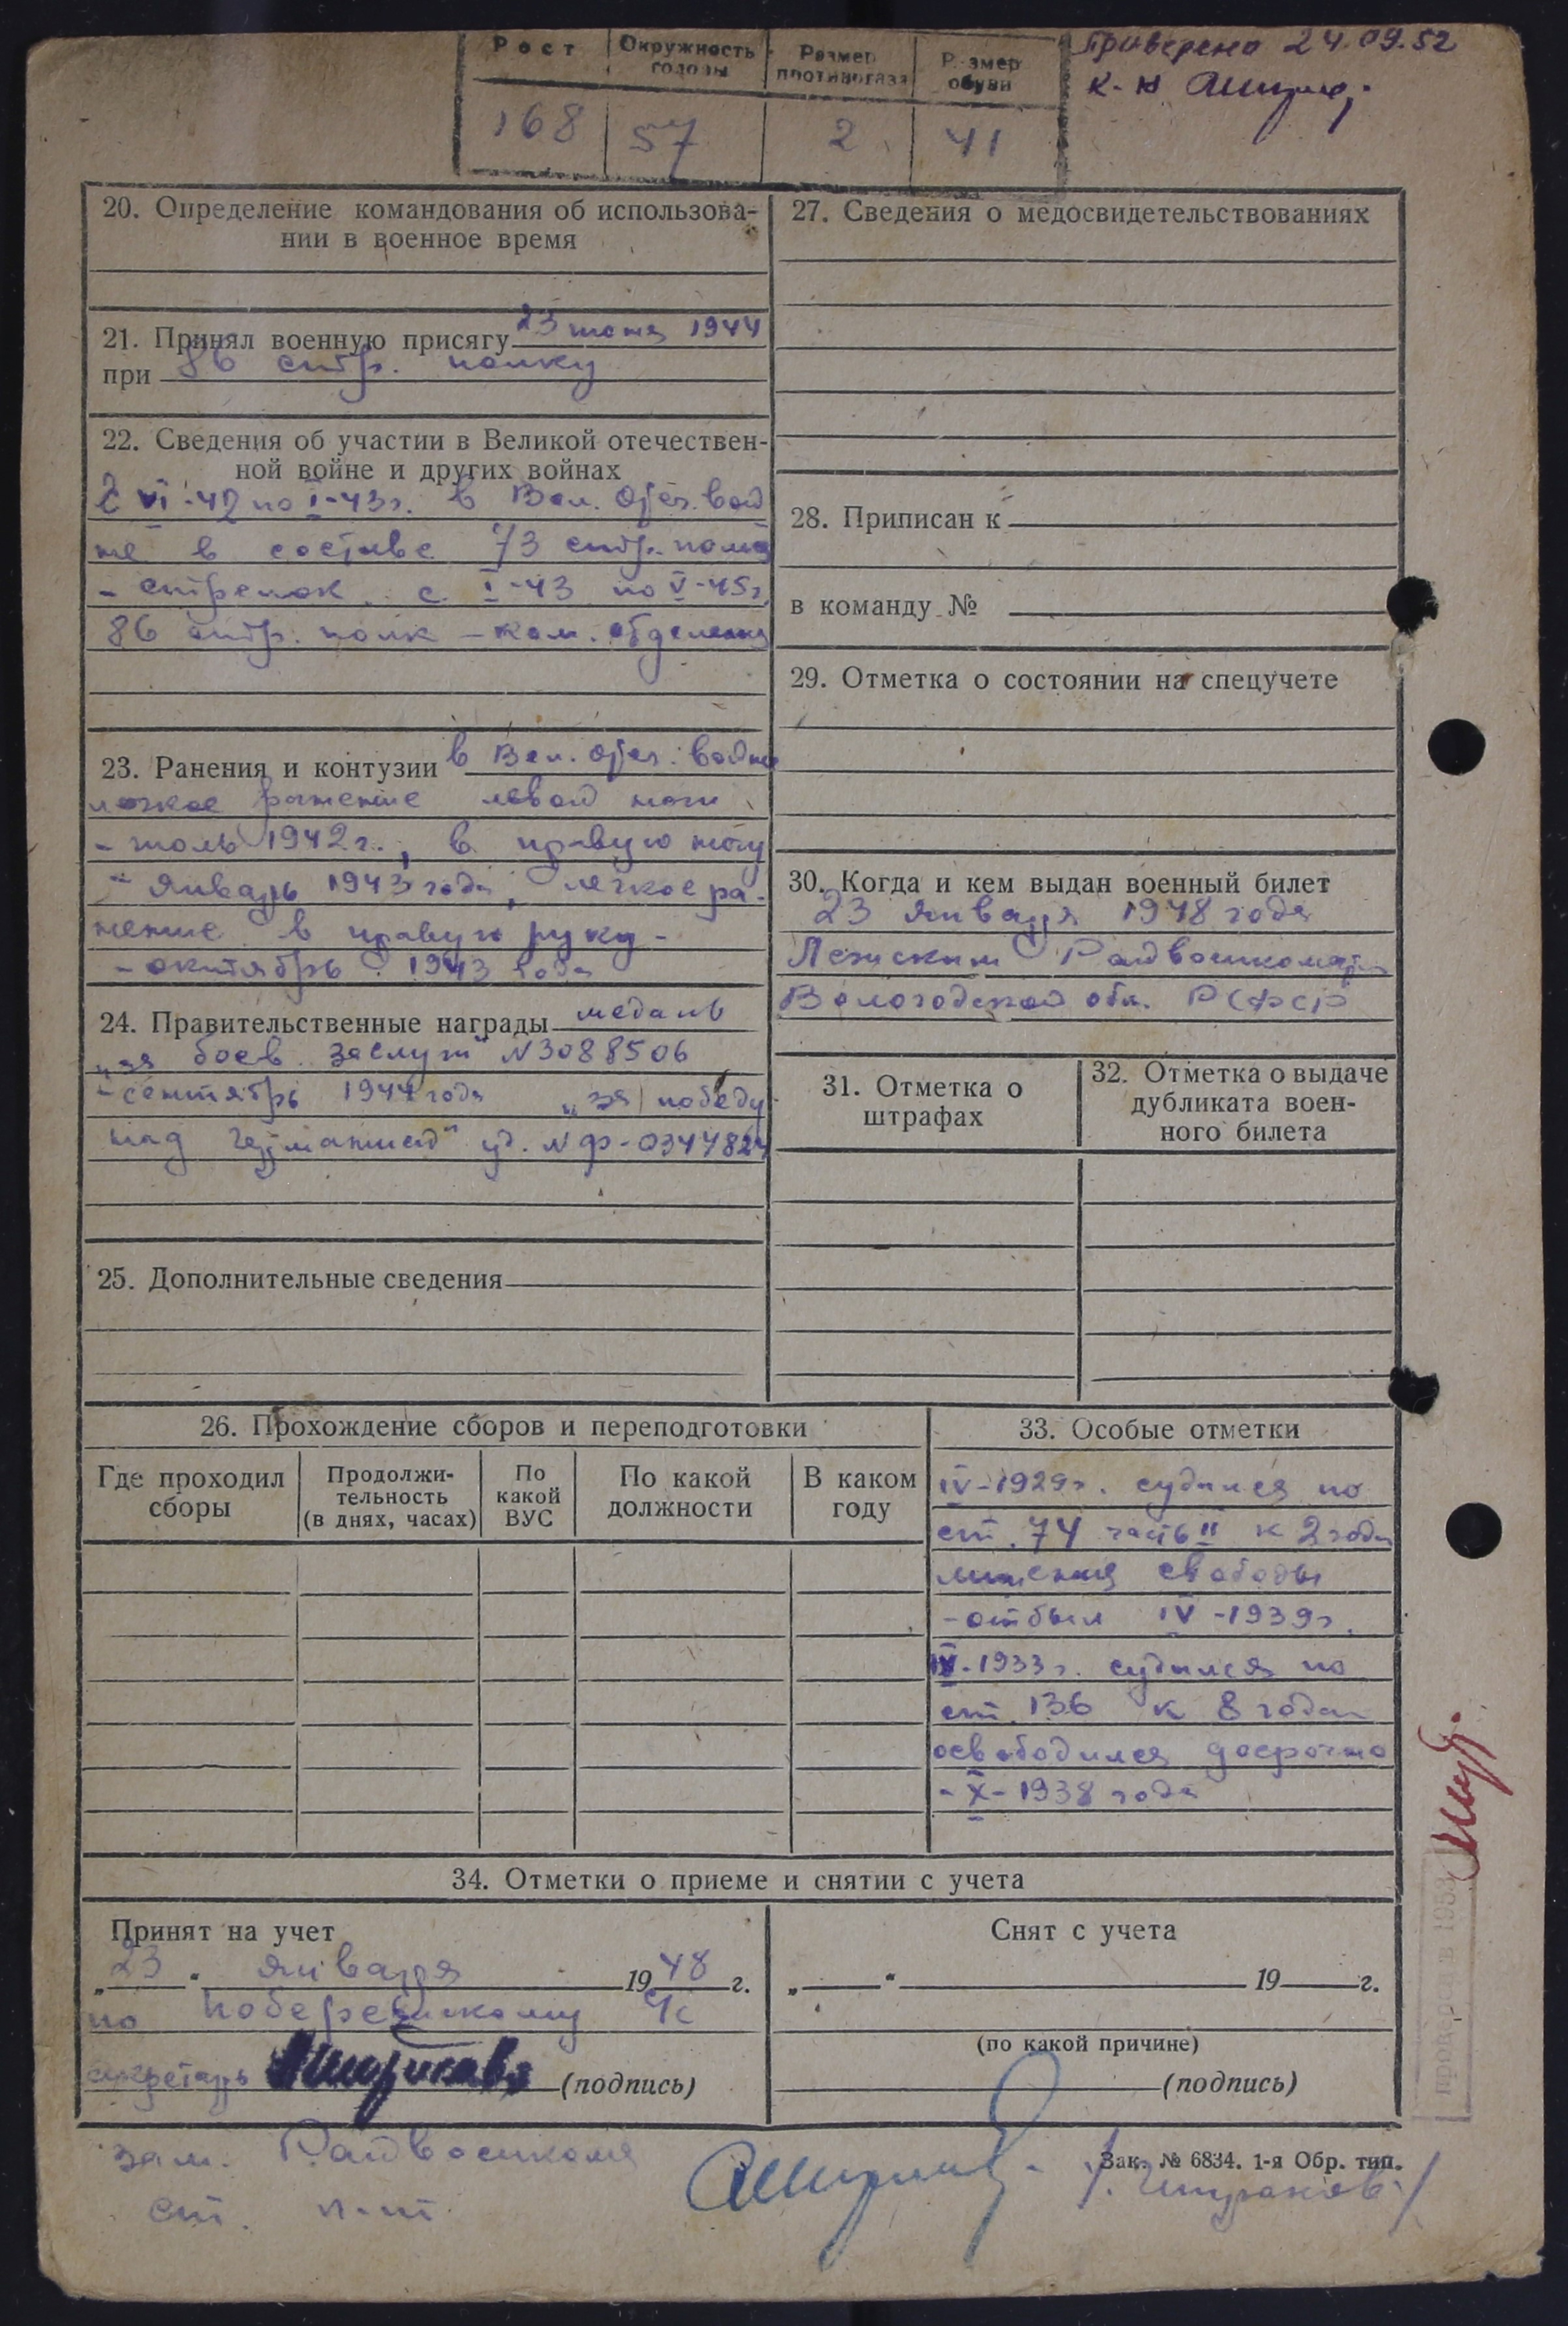 Рост Окружность головы Размер противогаза Размер обуви
168 57 2 41
Проверено 24.09.52
к-н
20. Определение командования об использова-
нии в военное время
21. Принял военную присягу 23 июня 1944
при 86 стр. полку
22. Сведения об участии в Великой отечествен-
ной войне и других войнах
С VI-42 по I-43г. в Вел. Отеч. вой
не в составе 73 стр. полка
- стрелок. с I-43 по V-45г.
86 стр. полк - ком. отделения
23. Ранения и контузии в Вел. Отеч. войне
легкое ранение левой ноги
- июль 1942г., в правую ногу
- Январь 1943 года, легкое ра-
нение в правую руку -
- октябрь 1943 года
24. Правительственные награды медаль
„за боев. заслуги" N3088506
- сентябрь 1944 года „за победу
над Германией" уд. N Ф-0344824
25. Дополнительные сведения
27. Сведения о медосвидетельствованиях
28. Приписан к
в команду №
29. Отметка о состоянии на спецучете
30. Когда и кем выдан военный билет
23 Января 1948 года
Лежским Райвоенкоматом
Вологодской обл. РСФСР
31. Отметка о
штрафах
32. Отметка о выдаче
дубликата воен-
ного билета
26. Прохождение сборов и переподготовки
Где проходил сборы Продолжи-тельность (в днях, часах) По какой ВУС По какой должности В каком году
33. Особые отметки
IV-1929г. судился по
ст. 74 часть II к 2 годам
лишения свободы
- отбыл IV-1939г.
IV-1933г. судился по
ст. 136 к 8 годам
освободился досрочно
- X - 1938 года
34. Отметки о приеме и снятии с учета
Принят на учет
„23" Января 1948 г.
по
секретарь (подпись)
Снят с учета
„ " 19 г.
(по какой причине)
(подпись)
зам. Райвоенкома
ст. л-т
Зак. № 6834. 1-я Обр. тип.